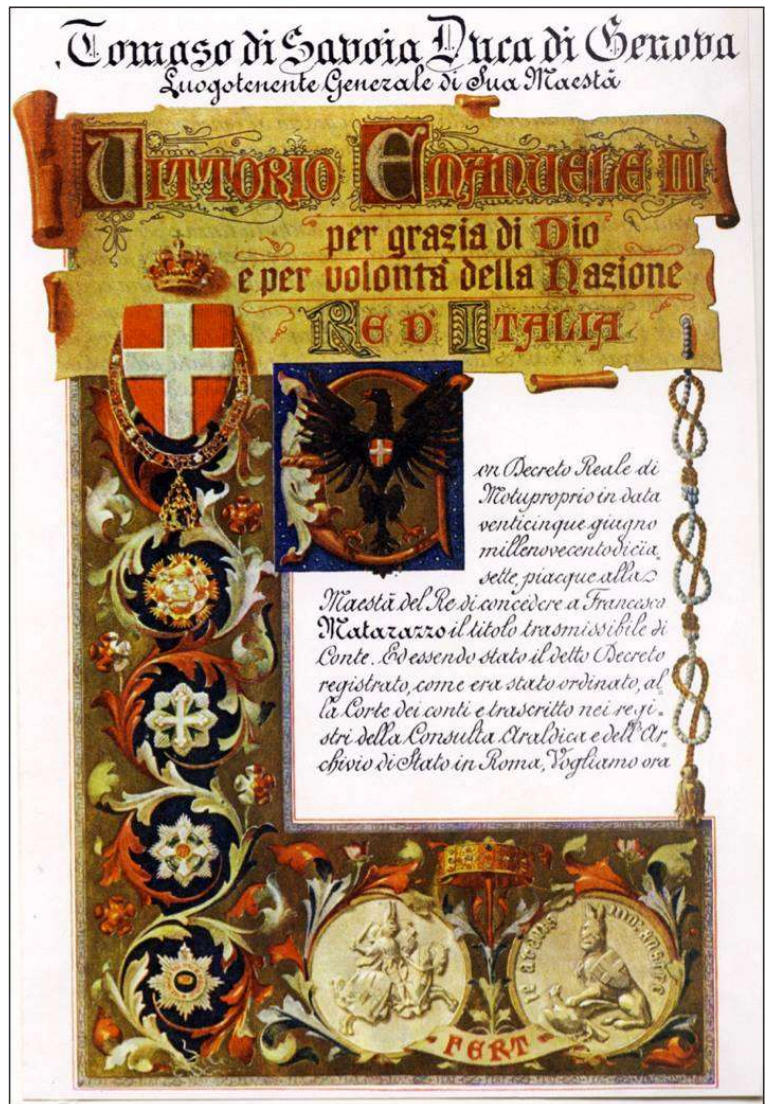 Tomaso di Savoia Duca di Genova
Luogotenente Generale di Sua Maestà
VITTORIO EMANUELE III
per grazia di Dio
e per volontà della Nazione
RE D'ITALIA
Con Decreto Reale di
Motuproprio in data
venticinque giugno
millenovecentodicia_
sette, piacque alla
Maestà del Re di concedere a Francesco
Matarazzo il titolo trasmissibile di
Conte. Ed essendo stato il detto Decreto
registrato, come era stato ordinato, al_
la Corte dei conti e trascritto nei regi_
stri della Consulta Araldica e dell'Ar_
chivio di Stato in Roma, Vogliamo ora
FERT